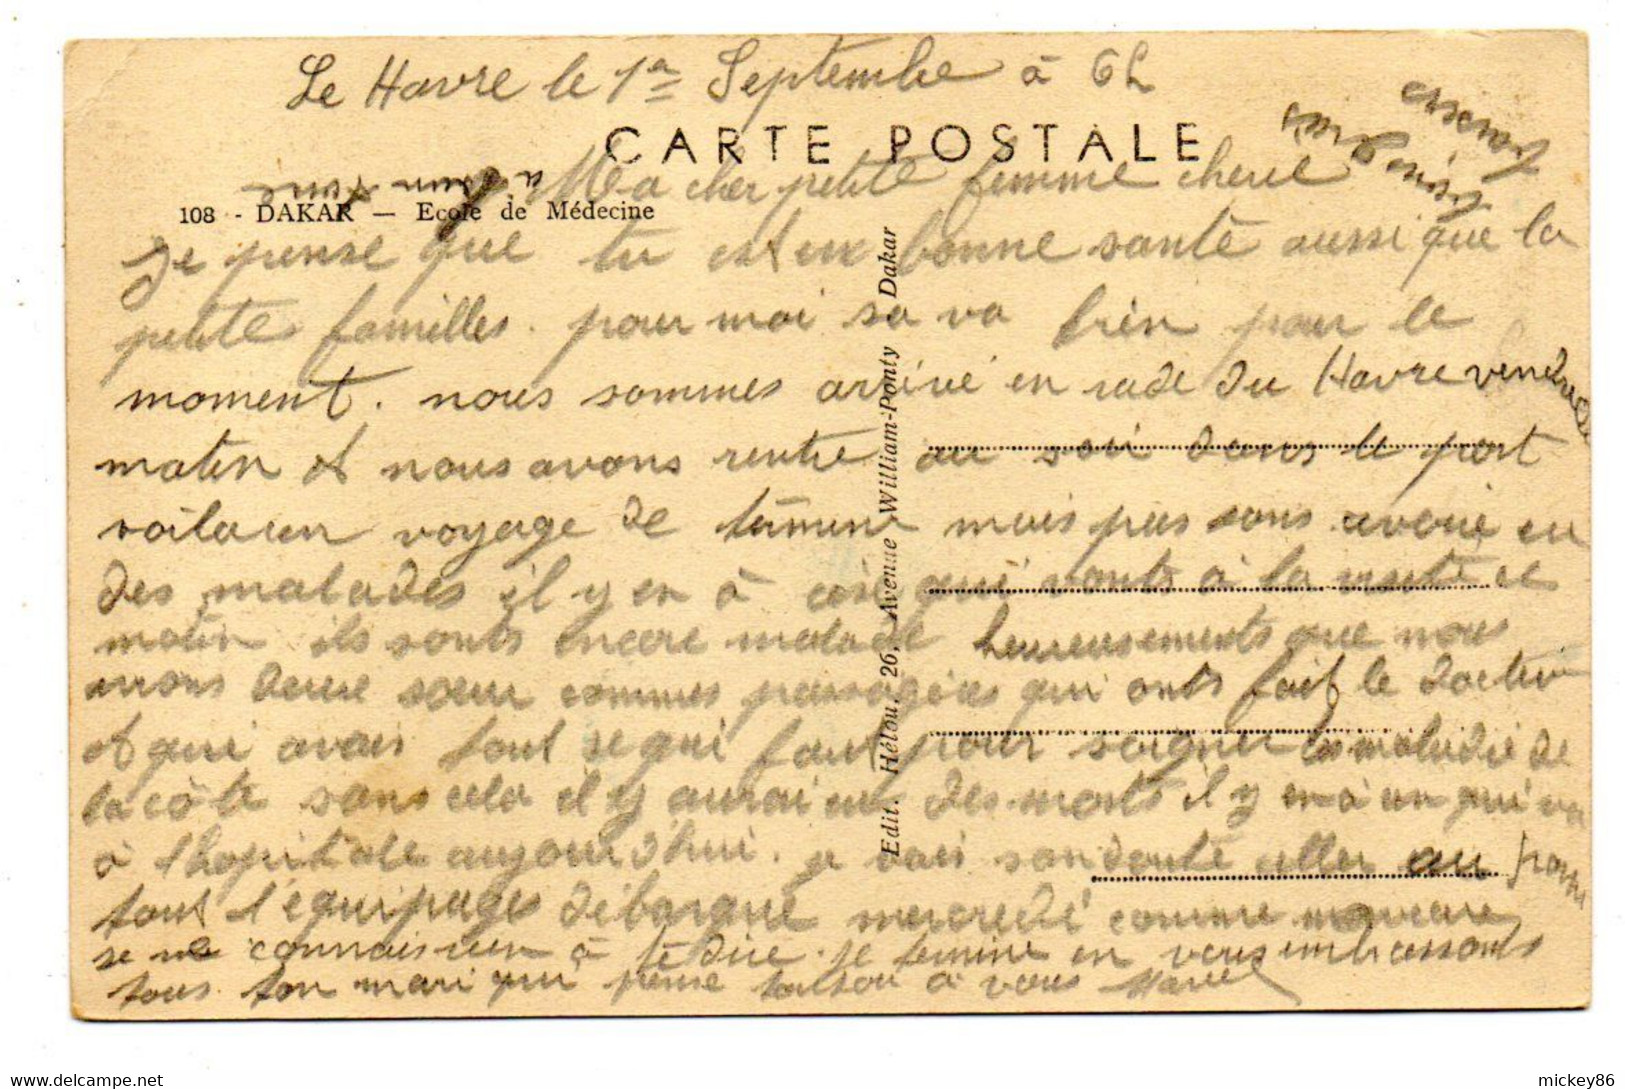 Le Havre le 1er Septembre à 6h
CARTE POSTALE
Ma cher petite femme cherie
108 - DAKAR — Ecole de Médecine
Je pense que tu est en bonne santé aussi que la
petite familles. pour moi sa va bien pour le
moment. nous sommes arrivé en rade du Havre vendredi
matin et nous avons rentré au soir dans le port
voila un voyage de términé mais pas sans avoir eu
des malades il y en à qui vonts à la visite ce
matin ils sonts encore malade heureusements que nous
avons deux sœur commes passagères qui onts fait le docteur
et qui avais tout se qui faut pour soigner les maladie de
la côte sans cela il y aurai eu des morts il y en à un qui va
à l'hopitale aujourd'hui. je vais sandouté aller au
tout l'équipages débarque mercredi comme
se ne connais rien à te dire. je termine en vous embrassants
tous ton mari qui pense à vous Marcel
Edit. Hélou, 26, Avenue William-Ponty Dakar